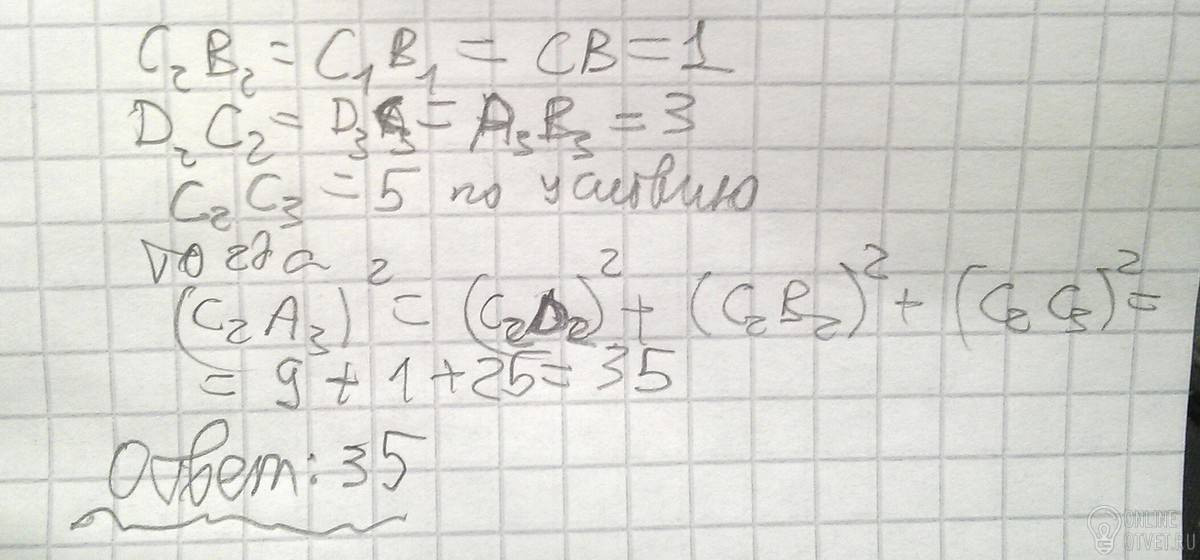 C₂B₂ = C₁B₁ = CB = 1
D₂C₂ = D₃C₃ = A₃B₃ = 3
C₂C₃ = 5 по условию
тогда
(C₂A₃)² = (C₂D₂)² + (C₂B₂)² + (C₂C₃)² =
= 9 + 1 + 25 = 35
Ответ: 35
ONLINE
OTVET.RU